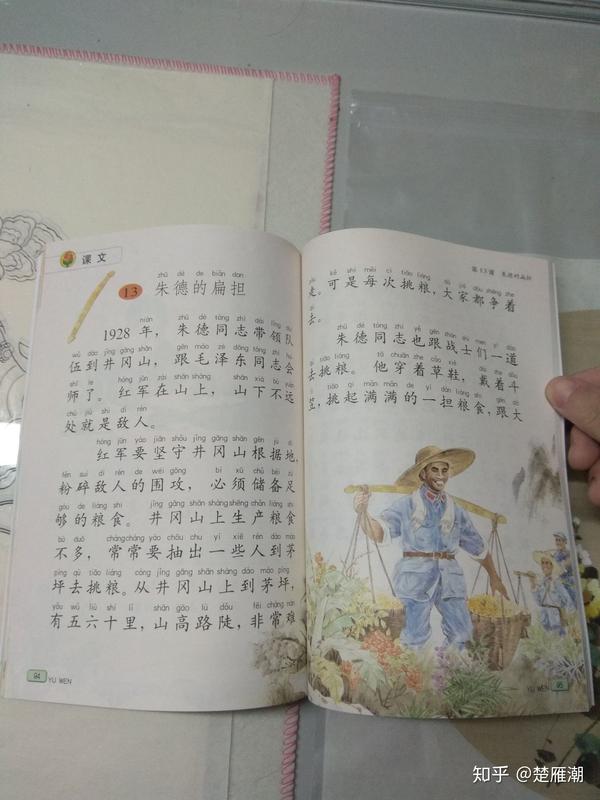 课文
zhū dé de biǎn dan
13 朱德的扁担
nián zhū dé tóng zhì dài lǐng duì
1928 年， 朱德同志带领队
wǔ dào jǐng gāng shān gēn máo zé dōng tóng zhì huì
伍到井冈山， 跟毛泽东同志会
shī le hóng jūn zài shān shàng shān xià bù yuǎn
师了。 红军在山上， 山下不远
chù jiù shì dí rén
处就是敌人。
hóng jūn yào jiān shǒu jǐng gāng shān gēn jù dì
红军要坚守井冈山根据地，
fěn suì dí rén de wéi gōng bì xū chǔ bèi zú
粉碎敌人的围攻， 必须储备足
gòu de liáng shi jǐng gāng shān shàng shēng chǎn liáng shi
够的粮食。 井冈山上生产粮食
bù duō cháng cháng yào chōu chu yì xiē rén dào máo
不多， 常常要抽出一些人到茅
píng qù tiāo liáng cóng jǐng gāng shān shàng dào máo píng
坪去挑粮。从井冈山上到茅坪，
yǒu wǔ liù shí lǐ shān gāo lù dǒu fēi cháng nán
有五六十里，山高路陡，非常难
94 YU WEN
第13课 朱德的扁担
zǒu kě shì měi cì tiāo liáng dà jiā dōu zhēng zhe
走。可是每次挑粮，大家都争着
qù
去。
zhū dé tóng zhì yě gēn zhàn shì men yí dào
朱德同志也跟战士们一道
qù tiāo liáng tā chuān zhe cǎo xié dài zhe dǒu
去挑粮。 他穿着草鞋， 戴着斗
lì tiāo qǐ mǎn mǎn de yí dàn liáng shi gēn dà
笠，挑起满满的一担粮食，跟大
YU WEN 95
知乎 @楚雁潮